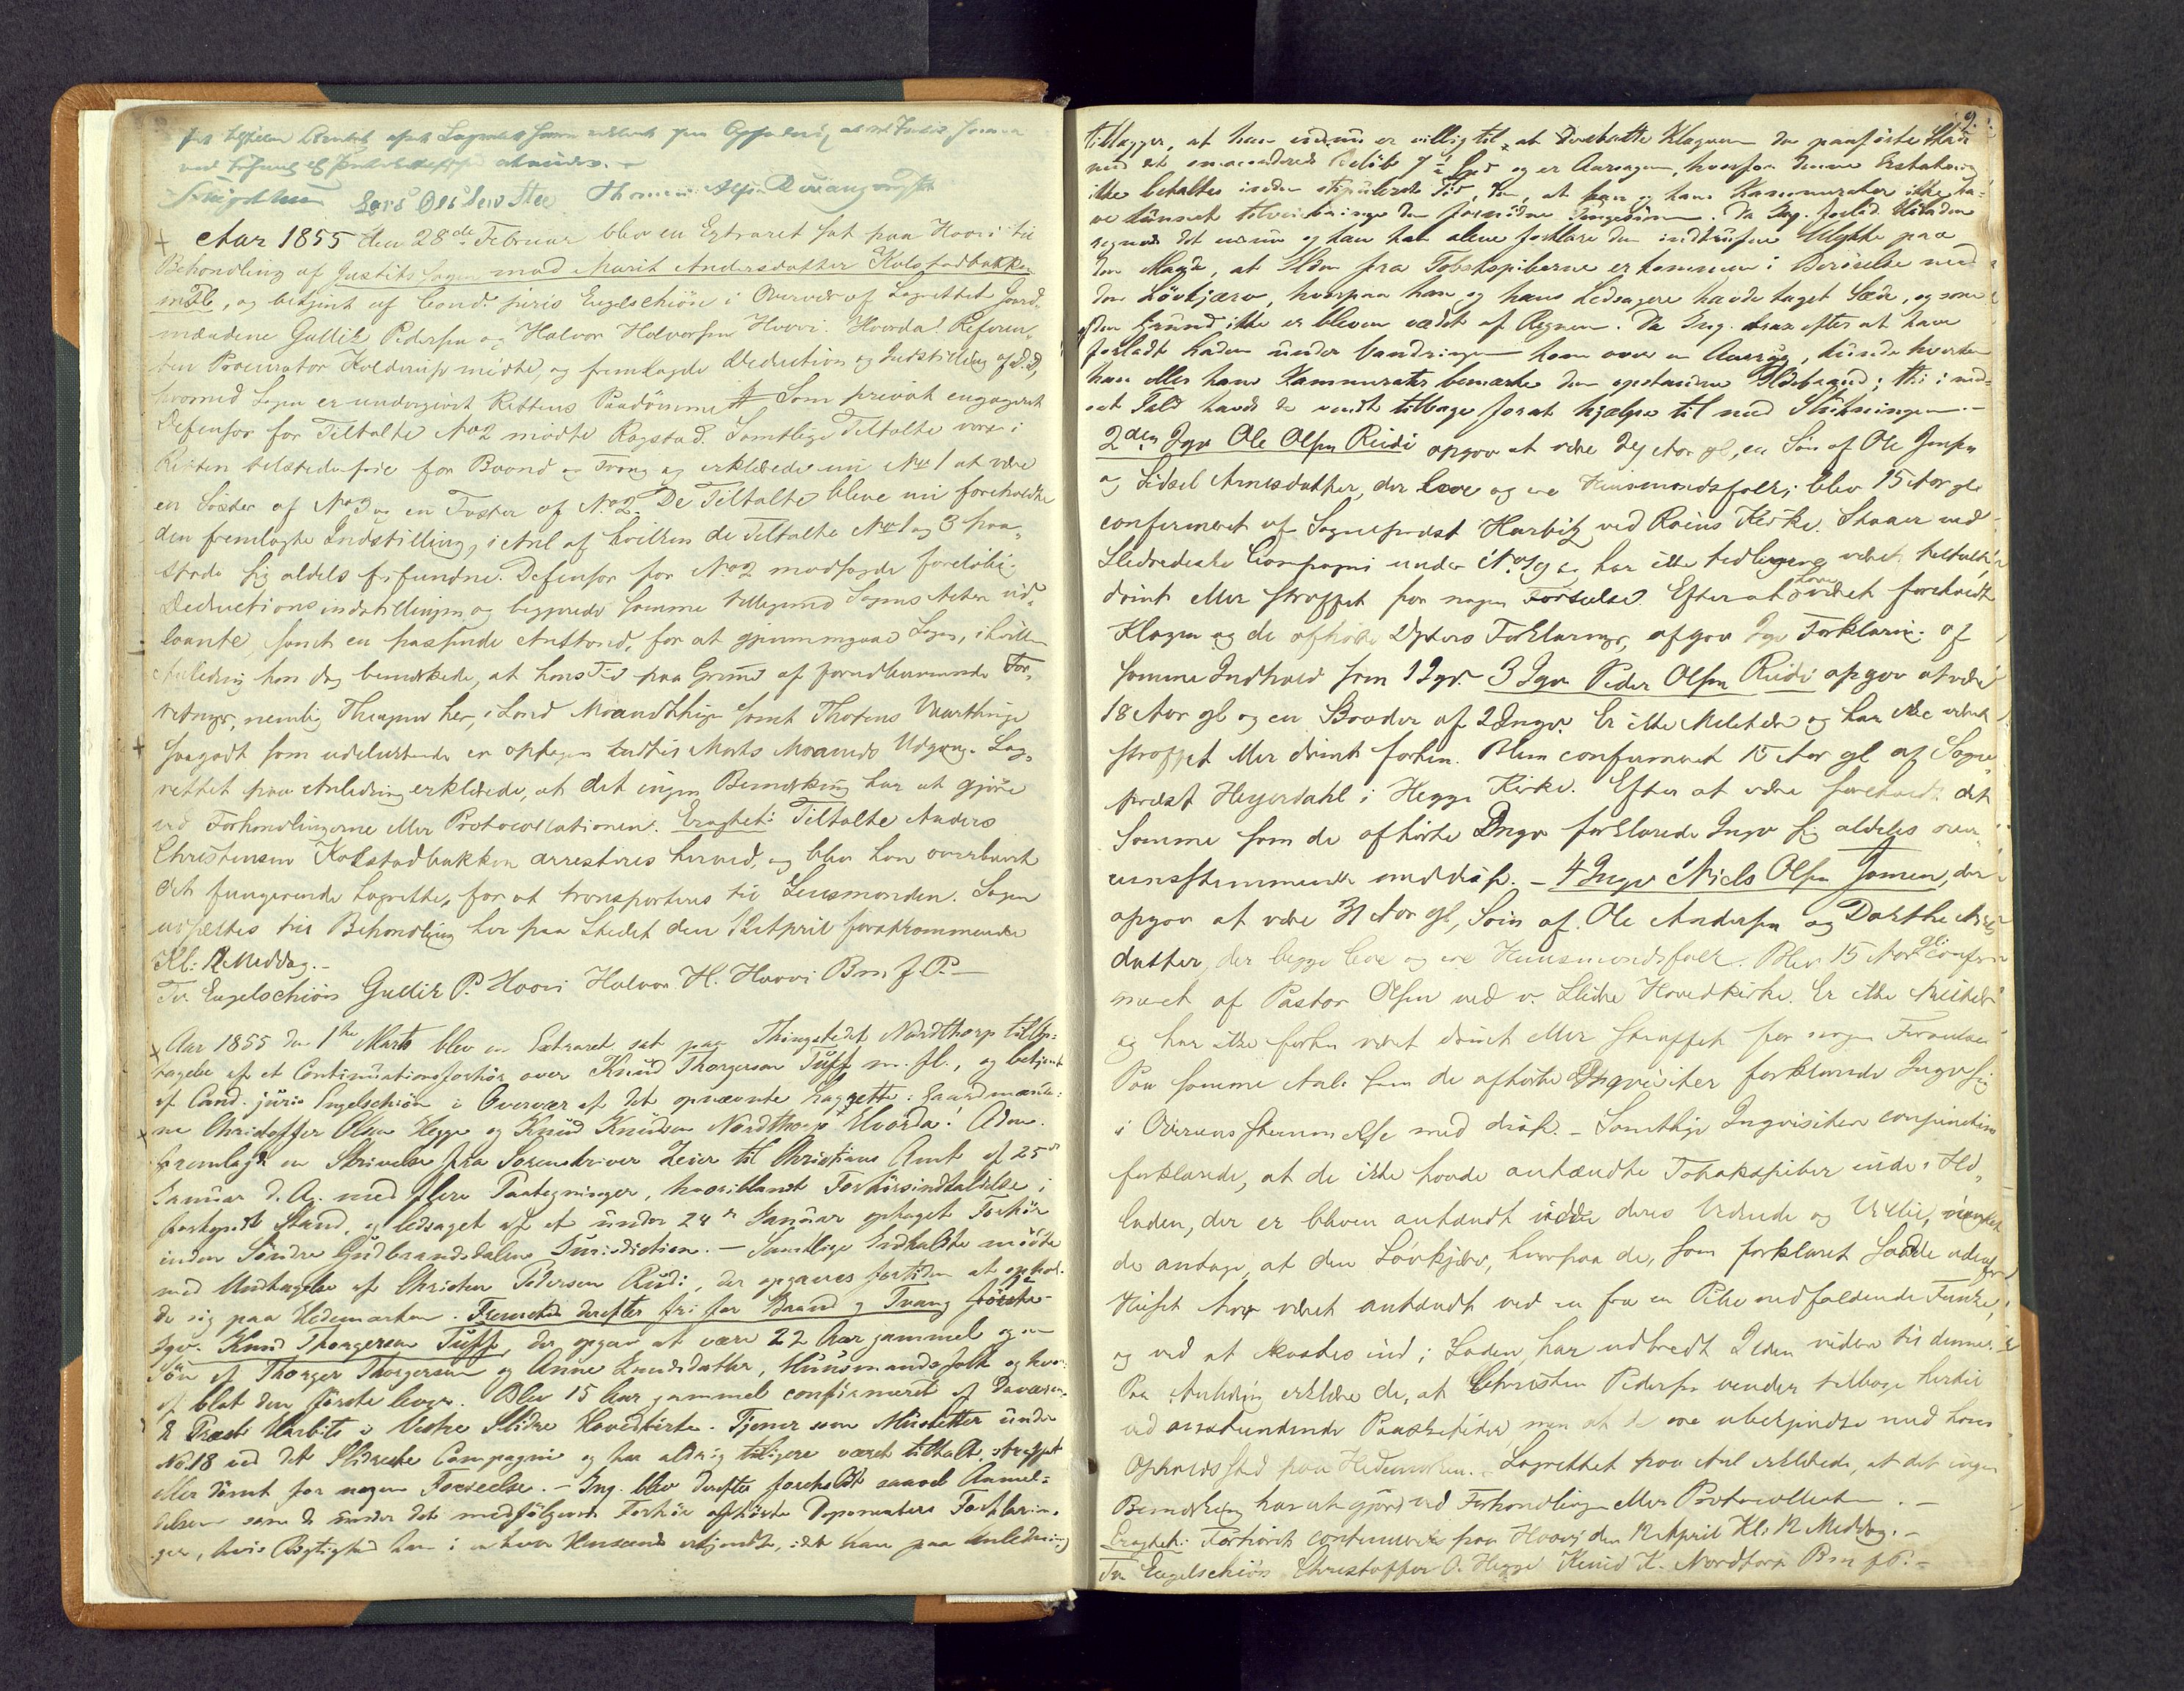 Lars Olsen Thomas Alfsen
Aar 1855 den 28de Februar blev en Extraret sat paa Hovi til
Behandling af Justits Sagen mod Marit Andersdatter Kolstadbakken
m Fl, og betjent af Cand. juris Engelschiøn i Overvær af Lagrettet Gaard-
mændene Gullik Pedersen og Halvor Halvorsen Hovi. Hvorda! Referen-
ten Procurator Kolderup mødte, og fremlagde Deduction og Indstilling af D.D,
hvormed Sagen er undergivet Rettens Paadømme # Som privat engageret
Defensor for Tiltalte No 2 mødte Rogstad. Samtlige Tiltalte vare i
Retten tilstede frie for Baand og Tvang og erklærede nu No 1 at være
en Søster af No 3 og en Faster af No 2. De Tiltalte bleve nu foreholdte
den fremlagte Indstilling, i Anl af hvilken de Tiltalte No 1 og 3 paa-
stode sig aldeles frifundne. Defensor for No 2 modsagde foreløbig
Deductionsindstillingen og begjærede samme tilligemed Sagens Acter ud-
laante, samt en passende Anstand, for at gjennemgaae Sagen, i hvilken
Anledning han dog bemærkede, at hans Tid paa Grund af forudberammede For-
retninger, nemlig Thingene her, i Land samt Thotens
saagodt som udelukkende er optagen indtil Marts Maaneds Udgang. Lag-
rettet paa Anledning erklærede, at det ingen Bemærkning har at gjøre
ved Forhandlingerne eller Protocollationen. Eragtet: Tiltalte Anders
Christensen Kolstadbakken arresteres herved, og blev han overleveret
det fungerende Lagrette, for at transporteres til Lensmanden. Sagen
udsættes til Behandling her paa Stedet den 12 April førstkommende
Kl: 12 Middag.-
Tr. Engelschiøn Gullik P. Hovi Halvor H. Hovi Bm f. P.-
Aar 1855 den 1ste Marts blev en Extraret sat paa Thingstedet Nordthorp til Op-
tagelse af et Continuationsforhør over Knud Thorgersen Tuff m. fl., og betjent
af Cand. juris Engelschiøn i Overvær af det opnævnte Lagrette: Gaardmænde-
ne Christoffer Olsen Hegge og Knud Knudsen Nordthorp Hvorda! Adm.
fremlagde en Skrivelse fra Sorenskriver Zeier til Christians Amt af 25de
Januar d. A. med flere Paategninger, hvoriblandt Forhørsindkaldelse i
forkyndt Stand, og ledsaget af et under 24de Januar optaget Forhør
inden Søndre Gudbrandsdalens Jurisdiction. - Samtlige Indkaldte mødte
med Undtagelse af Christen Pedersen Rudi, der opgaves fortiden at ophol-
de sig paa Hedemarken. Fremstod derefter fri for Baand og Tvang første
Inqv. Knud Thorgersen Tuff, der opgav at være 22 Aar gammel og en
Søn af Thorger Thorgersen og Anne Knudsdatter, Huusmandsfolk og hvor-
af blot den første lever. Blev 15 Aar gammel confirmeret af daværen-
de Præst Harbitz i Vestre Slidre Hovedkirke. Tjener som Musketter under
No. 18 ved det Slidreske Compagni og har aldrig tidligere været tiltalt, straffet
eller dømt for nogen Forseelse. - Inq. blev derefter foreholdt saavel Anmel-
delsen som de under det medfølgende Forhør afhørte Deponenters Forklarin-
ger, hvis Rigtighed han i enhver Henseende erkjendte, idet han paa Anledning
9.
tillægger, at han endnu er villig til at Klageren den paaførte Skade
med et omaccorderet Beløb og er Aarsagen, hvorfor denne Erstatning
ikke betaltes inden stipuleret Tid, den, at han og hans Kammerater ikke ha-
ve kunnet tilveiebringe den fornødne Pengesum. Da Inq. forlod Høladen
regnede det endnu og han kan alene forklare den indtrufne Ulykke paa
den Maade, at Ilden fra Tobakspiberne er kommen i Berørelse med
den Løvkjærv, hvorpaa han og hans Ledsagere havde taget Sæde, og som
af den Grund ikke er bleven vædet af Regnen. Da Inq. efter at have
forladt Laden under Vandringen kom over en Aasryg, kunde hverken
han eller hans Kammerater bemærke den opstandne Ildebrand; thi i mod-
sat Fald havde de vendt tilbage for at hjælpe til med Slukningen. -
2den Inqv Ole Olsen Rudi opgav at være 24 Aar gl, en Søn af Ole Jensen
og Sidsel Arnesdatter, der leve og ere Huusmandsfolk; blev 15 Aar gl
confirmeret af Sogneprest Harbitz ved Kirke. Staaer ved
Slidreske Compagni under No og har ikke tidligere været tiltalt,
dømt eller straffet for nogen Forseelse. Efter at have været foreholdt
Klagen og de afhørte Dptrs Forklaringer, afgav Inqv Forklaring af
samme Indhold som 1 Iqv. 3 Iqv Peder Olsen Rudi opgav at være
18 Aar gl og en Broder af 2 Inqv. Er ikke Militær og har ikke været
straffet eller dømt forhen. Blev confirmeret 15 Aar gl af Sogne-
prest Heyerdahl i Hegge Kirke. Efter at være foreholdt det
samme som de afhørte Inqv forklarede Inqv sig aldeles over-
eensstemmende med disse. - 4 Inqv Niels Olsen Jomen, der
opgav at være 31 Aar gl, Søn af Ole Andersen og Dorthe
datter, der begge leve og ere Huusmandsfolk. Blev 15 Aar gl: confir-
meret af Pastor Olsen ved v. Slidre Hovedkirke. Er ikke Militær
og har ikke forhen været dømt eller straffet for nogen Forseelse
Paa samme Anl. som de afhørte Inqvisiter forklarede Inqv sig
i Overensstemmelse med disse. - Samtlige Inqvisiter conjunctim
forklarede, at de ikke havde antændte Tobakspiber inde i Hø-
laden, der er bleven antændt imod deres Vidende og Villie,
de antage, at den Løvkjærv, hvorpaa de, som forklaret sadde udenfor
Huset har været antændt ved en fra en Pibe nedfaldende Funke,
og ved at kastes ind i Laden, har udbredt Ilden videre til denne.
Paa Anledning erklærede de, at Christen Pedersen vender tilbage hertil
ved Paasketider, men at de ere ubekjendte med hans
Opholdssted paa Hedemarken. - Lagrettet paa Anl erklærede, at det ingen
Bemærkning har at gjøre ved Forhandlingen eller Protocollationen. -
Eragtet: Forhøret continueres paa Hovi den 12 April Kl: 12 Middag. -
Tr Engelschiøn Christoffer O. Hegge Knud K. Nordtorp Bm f P. -